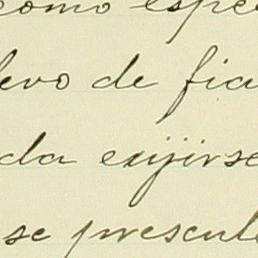 como espe
levo de fia
da exijirse
se presente